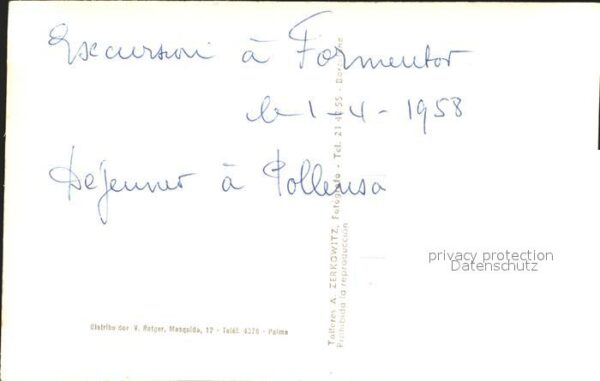 Excursion à Formentor
le 1-4-1958
Déjeuner à Pollensa
Talleres A. ZERKOWITZ, Fotógrafo - Tel. 21 49 55 - Barcelona
Prohibida la reproducción
privacy protection
Datenschutz
Distribuidor V. Rotger, Mesquida, 12 - Teléf. 4276 - Palma